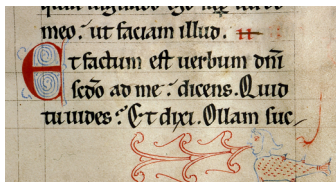 meo. ut faciam illud.
Et factum est uerbum dñi
scdo ad me. dicens. Quid
tu uides? Et dixi. Ollam suc